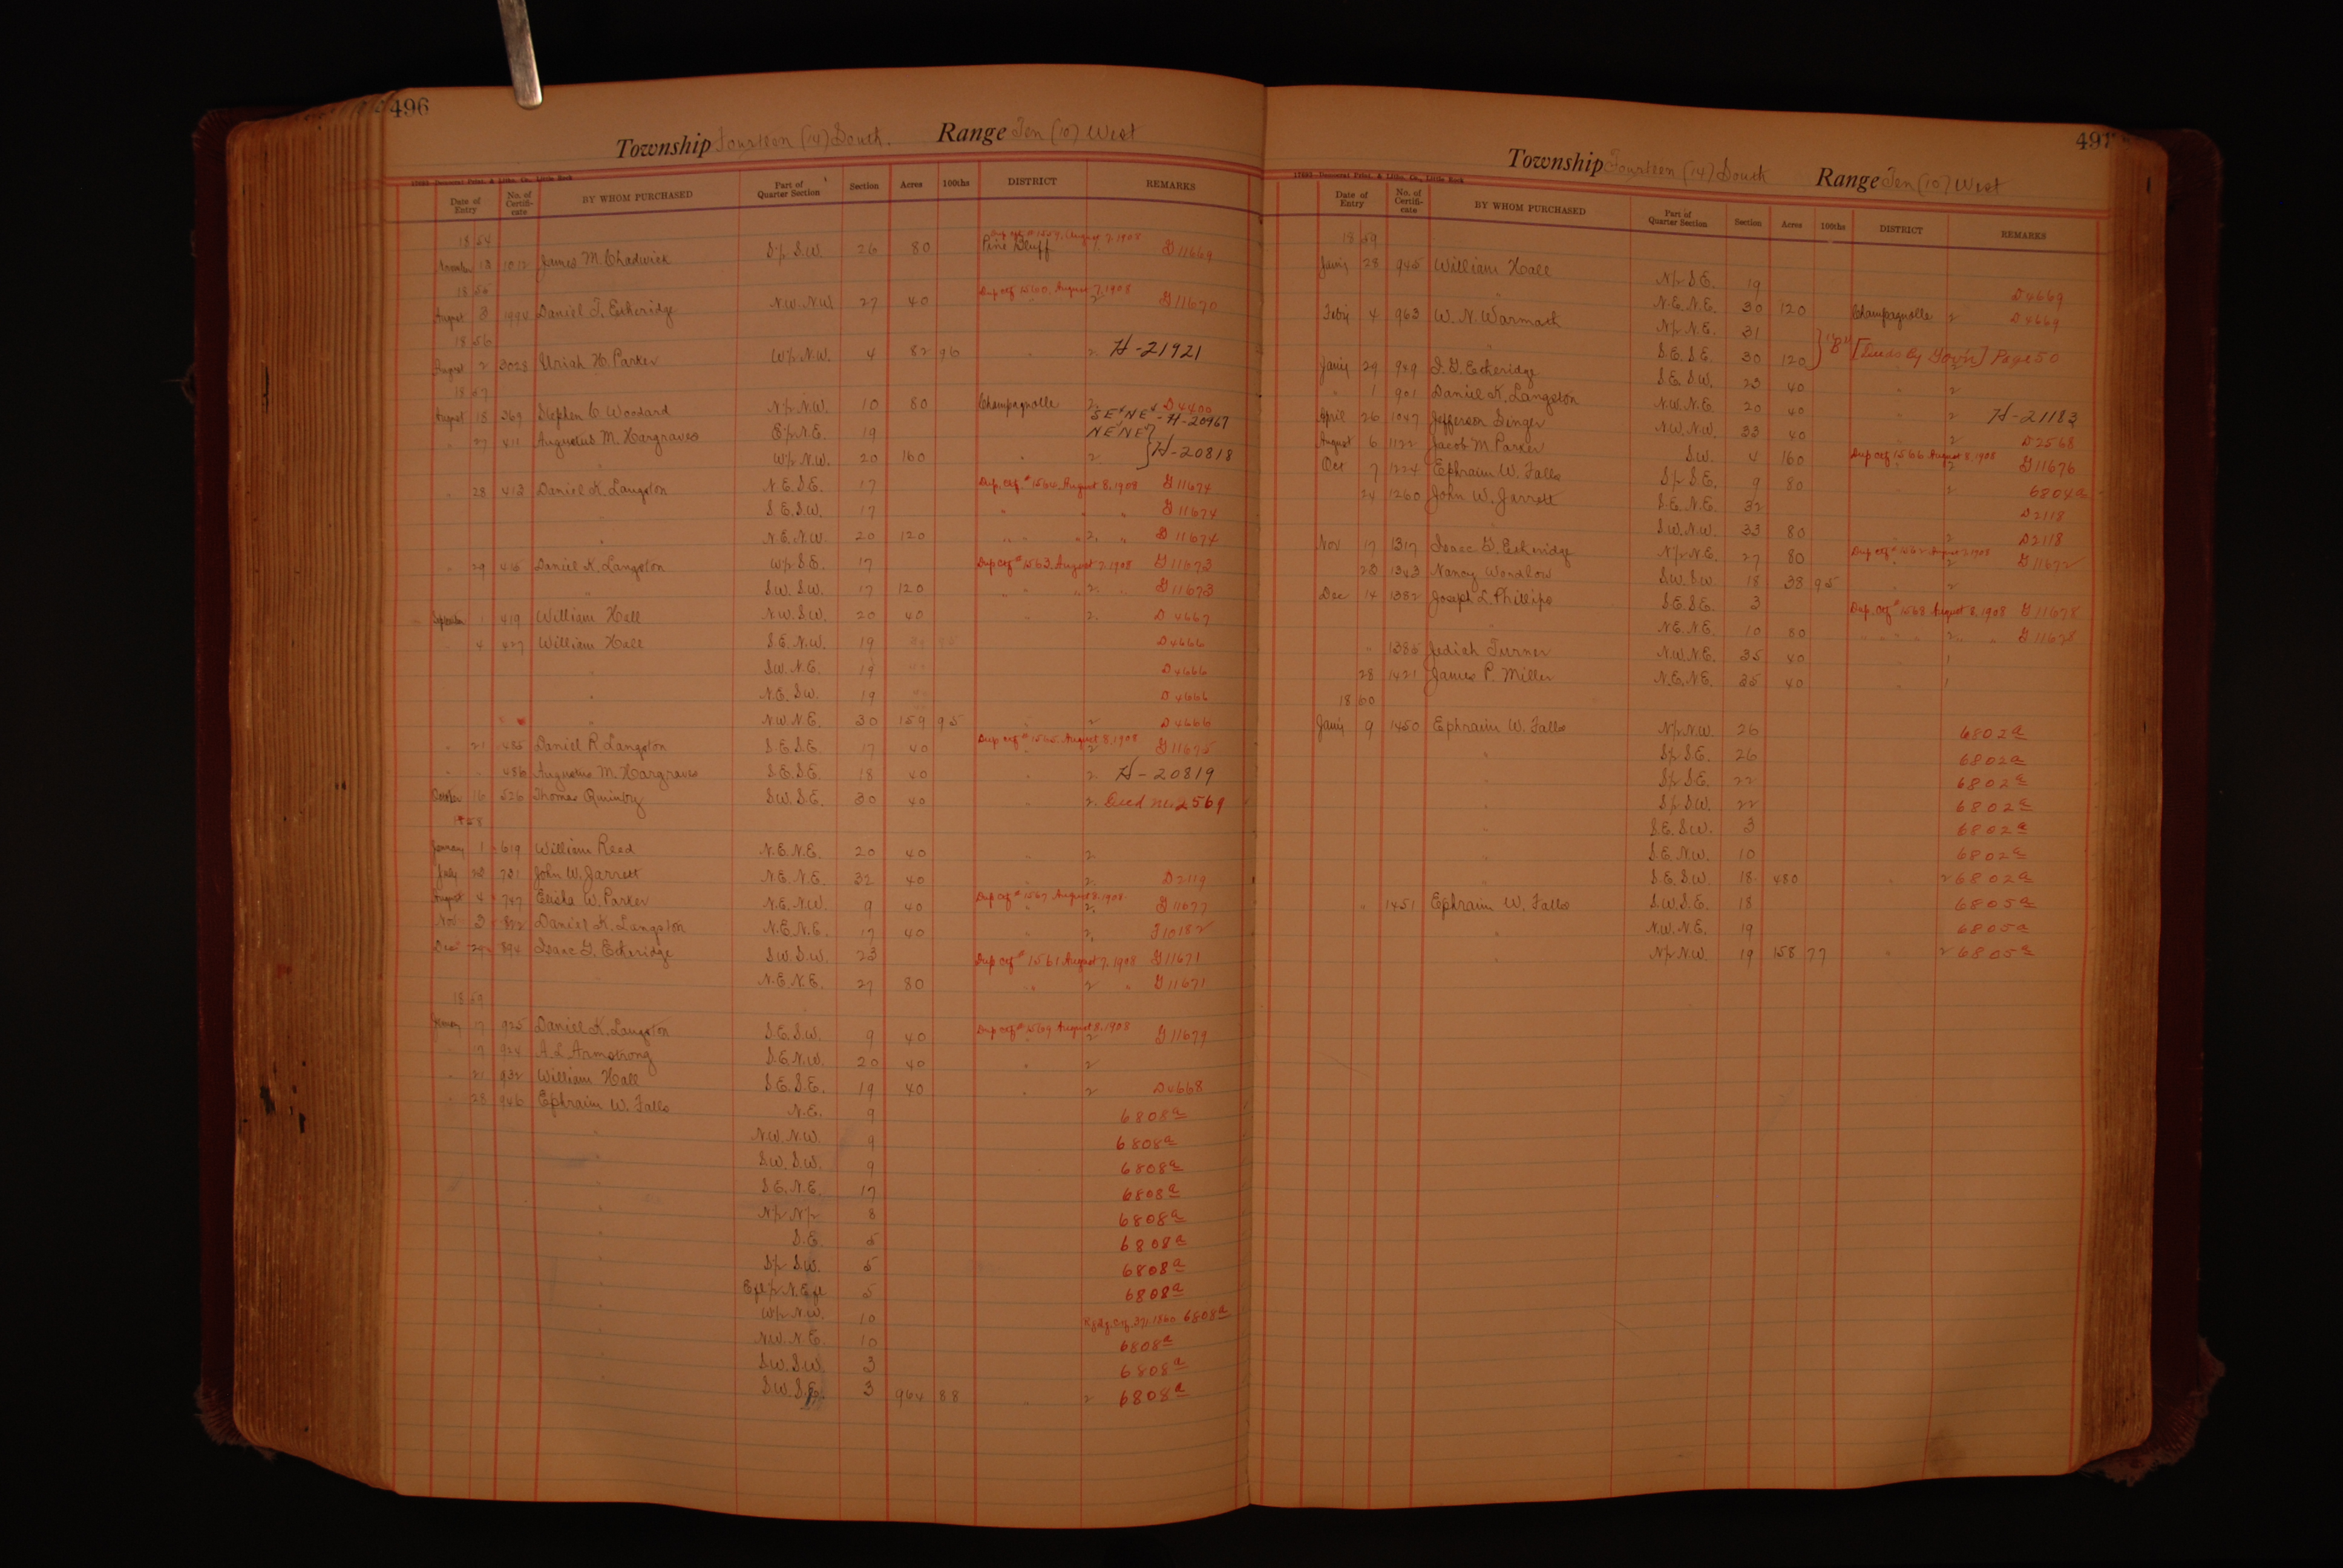 496
Township Fourteen (14) South. Range Ten (10) West
Date of Entry No. of Certifi-cate BY WHOM PURCHASED Part of Quarter Section Section Acres 100ths DISTRICT REMARKS
1854
November 13 1012 James M. Chadwick S½ S.W. 26 80 Pine Bluff G 11669
1855
August 3 1994 Daniel T. Etheridge N.W. N.W. 27 40 Dup Cef 1560, August 7, 1908 2 G 11670
1856
August 2 3028 Uriah H. Parker W½ N.W. 4 82 96 " 2 H-21921
1857
August 18 369 Stephen C. Woodard N½ N.W. 10 80 Champagnolle 2 D 4400
" 27 411 Augustus M. Hargraves E½ N.E. 19 SE NE - H-20967
NE NE
" W½ N.W. 20 160 " 2 H-20818
" 28 413 Daniel K. Langston N.E. S.E. 17 Dup. Cef # 1564 August 8, 1908 G 11674
" S.E. S.W. 17 " " " G 11674
" N.E. N.W. 20 120 " " 2 " G 11674
" 29 415 Daniel K. Langston W½ S.E. 17 Dup Cef # 1563, August 7, 1908 G 11673
" S.W. S.W. 17 120 " " 2 " G 11673
September 1 419 William Hall N.W. S.W. 20 40 " 2 D 4667
" 4 427 William Hall S.E. N.W. 19 D 4666
" S.W. N.E. 19 D 4666
" N.E. S.W. 19 D 4666
" N.W. N.E. 30 159 95 " 2 D 4666
" 21 485 Daniel R. Langston S.E. S.E. 17 40 Dup Cef # 1565, August 8, 1908 2 G 11675
" " 486 Augustus M. Hargraves S.E. S.E. 18 40 " 2 H-20819
October 16 526 Thomas Quimby S.W. S.E. 30 40 " 2 Deed No 2569
1858
January 1 619 William Reed N.E. N.E. 20 40 " 2
July 781 John W. Jarrett N.E. N.E. 32 40 " 2 D 2119
August 4 787 Elisha W. Parker N.E. N.W. 9 40 Dup Cef # 1567 August 8, 1908 2 G 11677
Nov 3 872 Daniel K. Langston N.E. N.E. 17 40 " 2 10182
Dec 29 894 Isaac G. Etheridge S.W. S.W. 23 Dup Cef # 1561 August 7, 1908 G 11671
" N.E. N.E. 27 80 " 2 " G 11671
1859
January 17 925 Daniel K. Langston S.E. S.W. 9 40 Dup Cef # 1569 August 8, 1908 2 G 11679
" 17 924 A. L. Armstrong S.E. N.W. 20 40 " 2
" 21 932 William Hall S.E. S.E. 19 40 " 2 D 4668
" 28 946 Ephraim W. Falls N.E. 9 6808a
" N.W. N.W. 9 6808a
" S.W. S.W. 9 6808a
" S.E. N.E. 17 6808a
" N½ N½ 8 6808a
" S.E. 5 6808a
" S½ S.W. 5 6808a
" 5 6808a
" W½ N.W. 10 6808a
" N.W. N.E. 10 6808a
" S.W. S.W. 3 6808a
S.W. 3 964 88 " 2 6808a
497
Township Fourteen (14) South Range Ten (10) West
Date of Entry No. of Certifi-cate BY WHOM PURCHASED Part of Quarter Section Section Acres 100ths DISTRICT REMARKS
1859
Jan'y 28 945 William Hall N½ S.E. 19 D 4669
" N.E. N.E. 30 120 Champagnolle 2 D 4669
Feb'y 4 963 W. N. Warmath N½ N.E. 31
" S.E. S.E. 30 120 "B" [Deeds By Gov'n] Page 50
Jan'y 29 949 I. G. Etheridge S.E. S.W. 23 40 " 2
" 1 901 Daniel K. Langston N.W. N.E. 20 40 " 2 H-21183
April 26 1047 Jefferson Singer N.W. N.W. 33 40 " 2 D 2568
August 6 1122 Jacob M. Parker S.W. 4 160 Dup Cef 1566 August 8, 1908 2 G 11676
Oct 7 1224 Ephraim W. Falls S½ S.E. 9 80 " 2 6804a
24 1260 John W. Jarrett S.E. N.E. 32 D 2118
" S.W. N.W. 33 80 " 2 D 2118
Nov 17 1317 Isaac G. Etheridge N½ N.E. 27 80 Dup Cef # 1562 August 7, 1908 2 G 11672
1343 Nancy Wondlow S.W. S.W. 18 38 95 " 2
Dec 14 1382 Joseph L. Phillips S.E. S.E. 3 Dup. Cef # 1568 August 8, 1908 G 11678
" N.E. N.E. 10 80 " " 2 " G 11678
" 1385 Jediah Turner N.W. N.E. 35 40 " 1
28 1421 James P. Miller N.E. N.E. 35 40 " 1
1860
Jan'y 9 1450 Ephraim W. Falls N½ N.W. 26 6802a
" S½ S.E. 26 6802a
" S½ S.E. 22 6802a
" S½ S.W. 22 6802a
" S.E. S.W. 3 6802a
" S.E. N.W. 10 6802a
" S.E. S.W. 18 480 " 2 6802a
" 1451 Ephraim W. Falls S.W. S.E. 18 6805a
" N.W. N.E. 19 6805a
" N½ N.W. 19 158 77 " 2 6805a